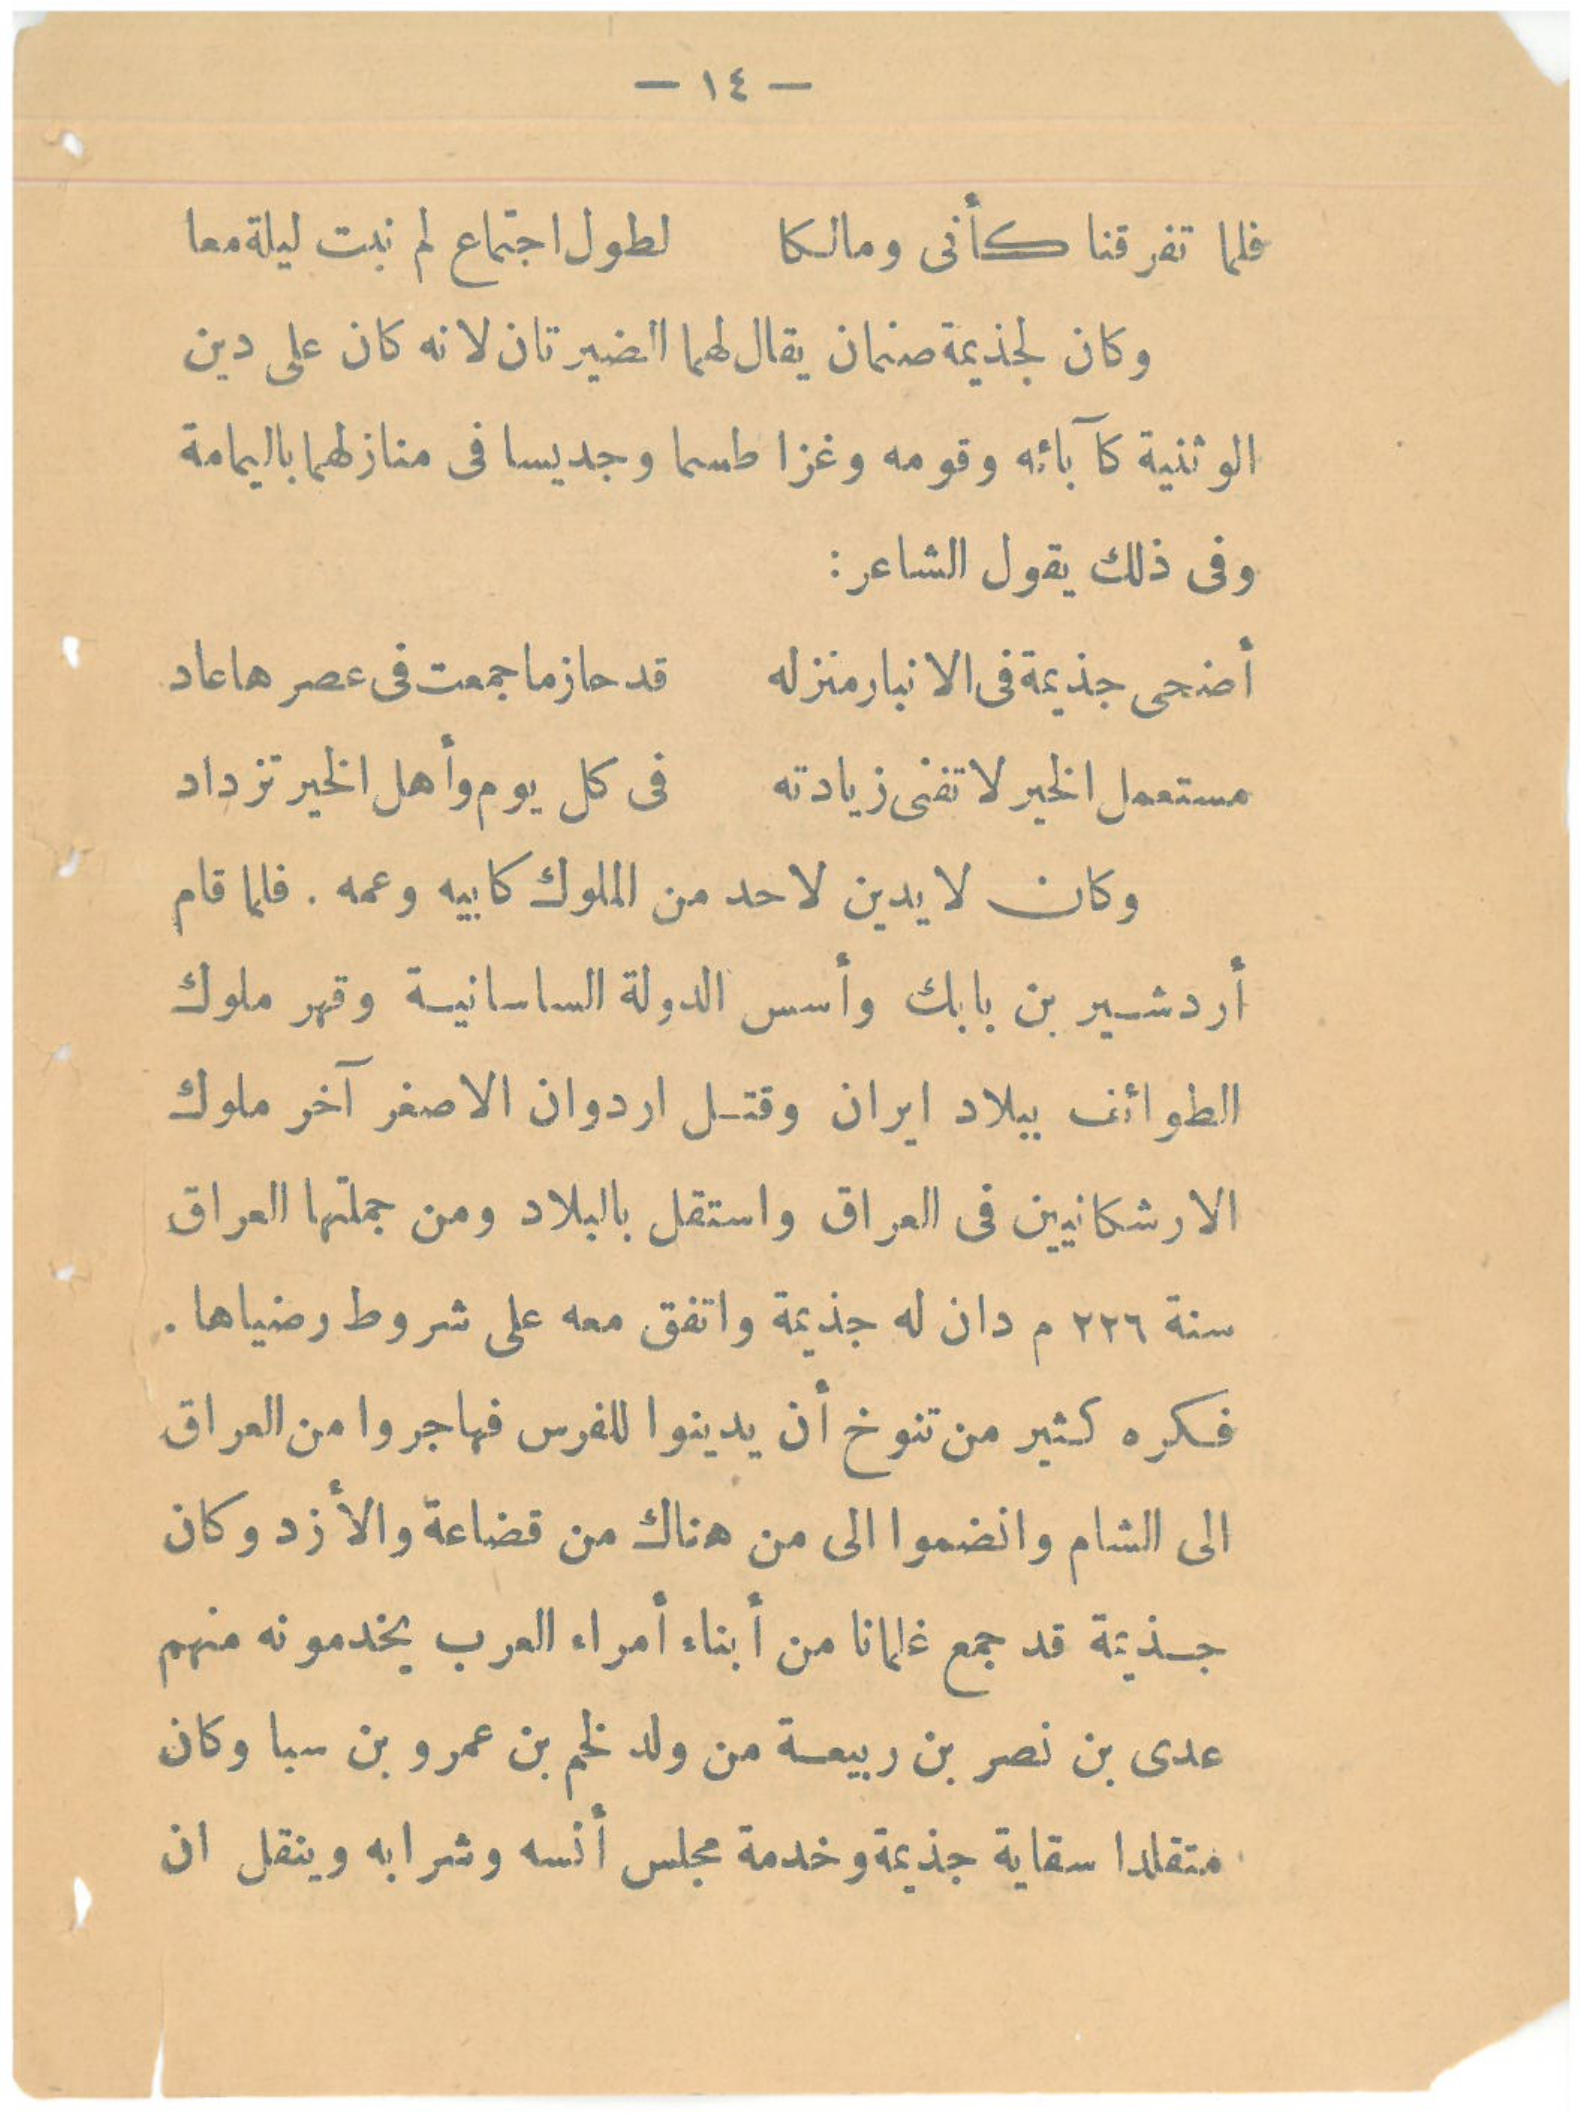 — ١٤ —
فلما تفرقنا كأنى ومالكا لطول اجتماع لم نبت ليلة معا
وكان لجذيمة صنمان يقال لهما الضيرتان لانه كان على دين
الوثنية كآبائه وقومه وغزا طسما وجديسا فى منازلهما باليمامة
وفى ذلك يقول الشاعر :
أضحى جذيمة فى الانبار منزله قد حاز ما جمعت فى عصرها عاد
مستعمل الخير لا تفنى زيادته فى كل يوم وأهل الخير تزداد
وكان لا يدين لاحد من الملوك كابيه وعمه . فلما قام
أردشير بن بابك وأسس الدولة الساسانية وقهر ملوك
الطوائف ببلاد ايران وقتل اردوان الاصغر آخر ملوك
الارشكانيين فى العراق واستقل بالبلاد ومن جملتها العراق
سنة ٢٢٦ م دان له جذيمة واتفق معه على شروط رضياها .
فكره كثير من تنوخ أن يدينوا للفرس فهاجروا من العراق
الى الشام وانضموا الى من هناك من قضاعة والأزد وكان
جذيمة قد جمع غلمانا من أبناء أمراء العرب يخدمونه منهم
عدى بن نصر بن ربيعة من ولد لخم بن عمرو بن سبا وكان
متقلدا سقاية جذيمة وخدمة مجلس أنسه وشرابه وينقل ان